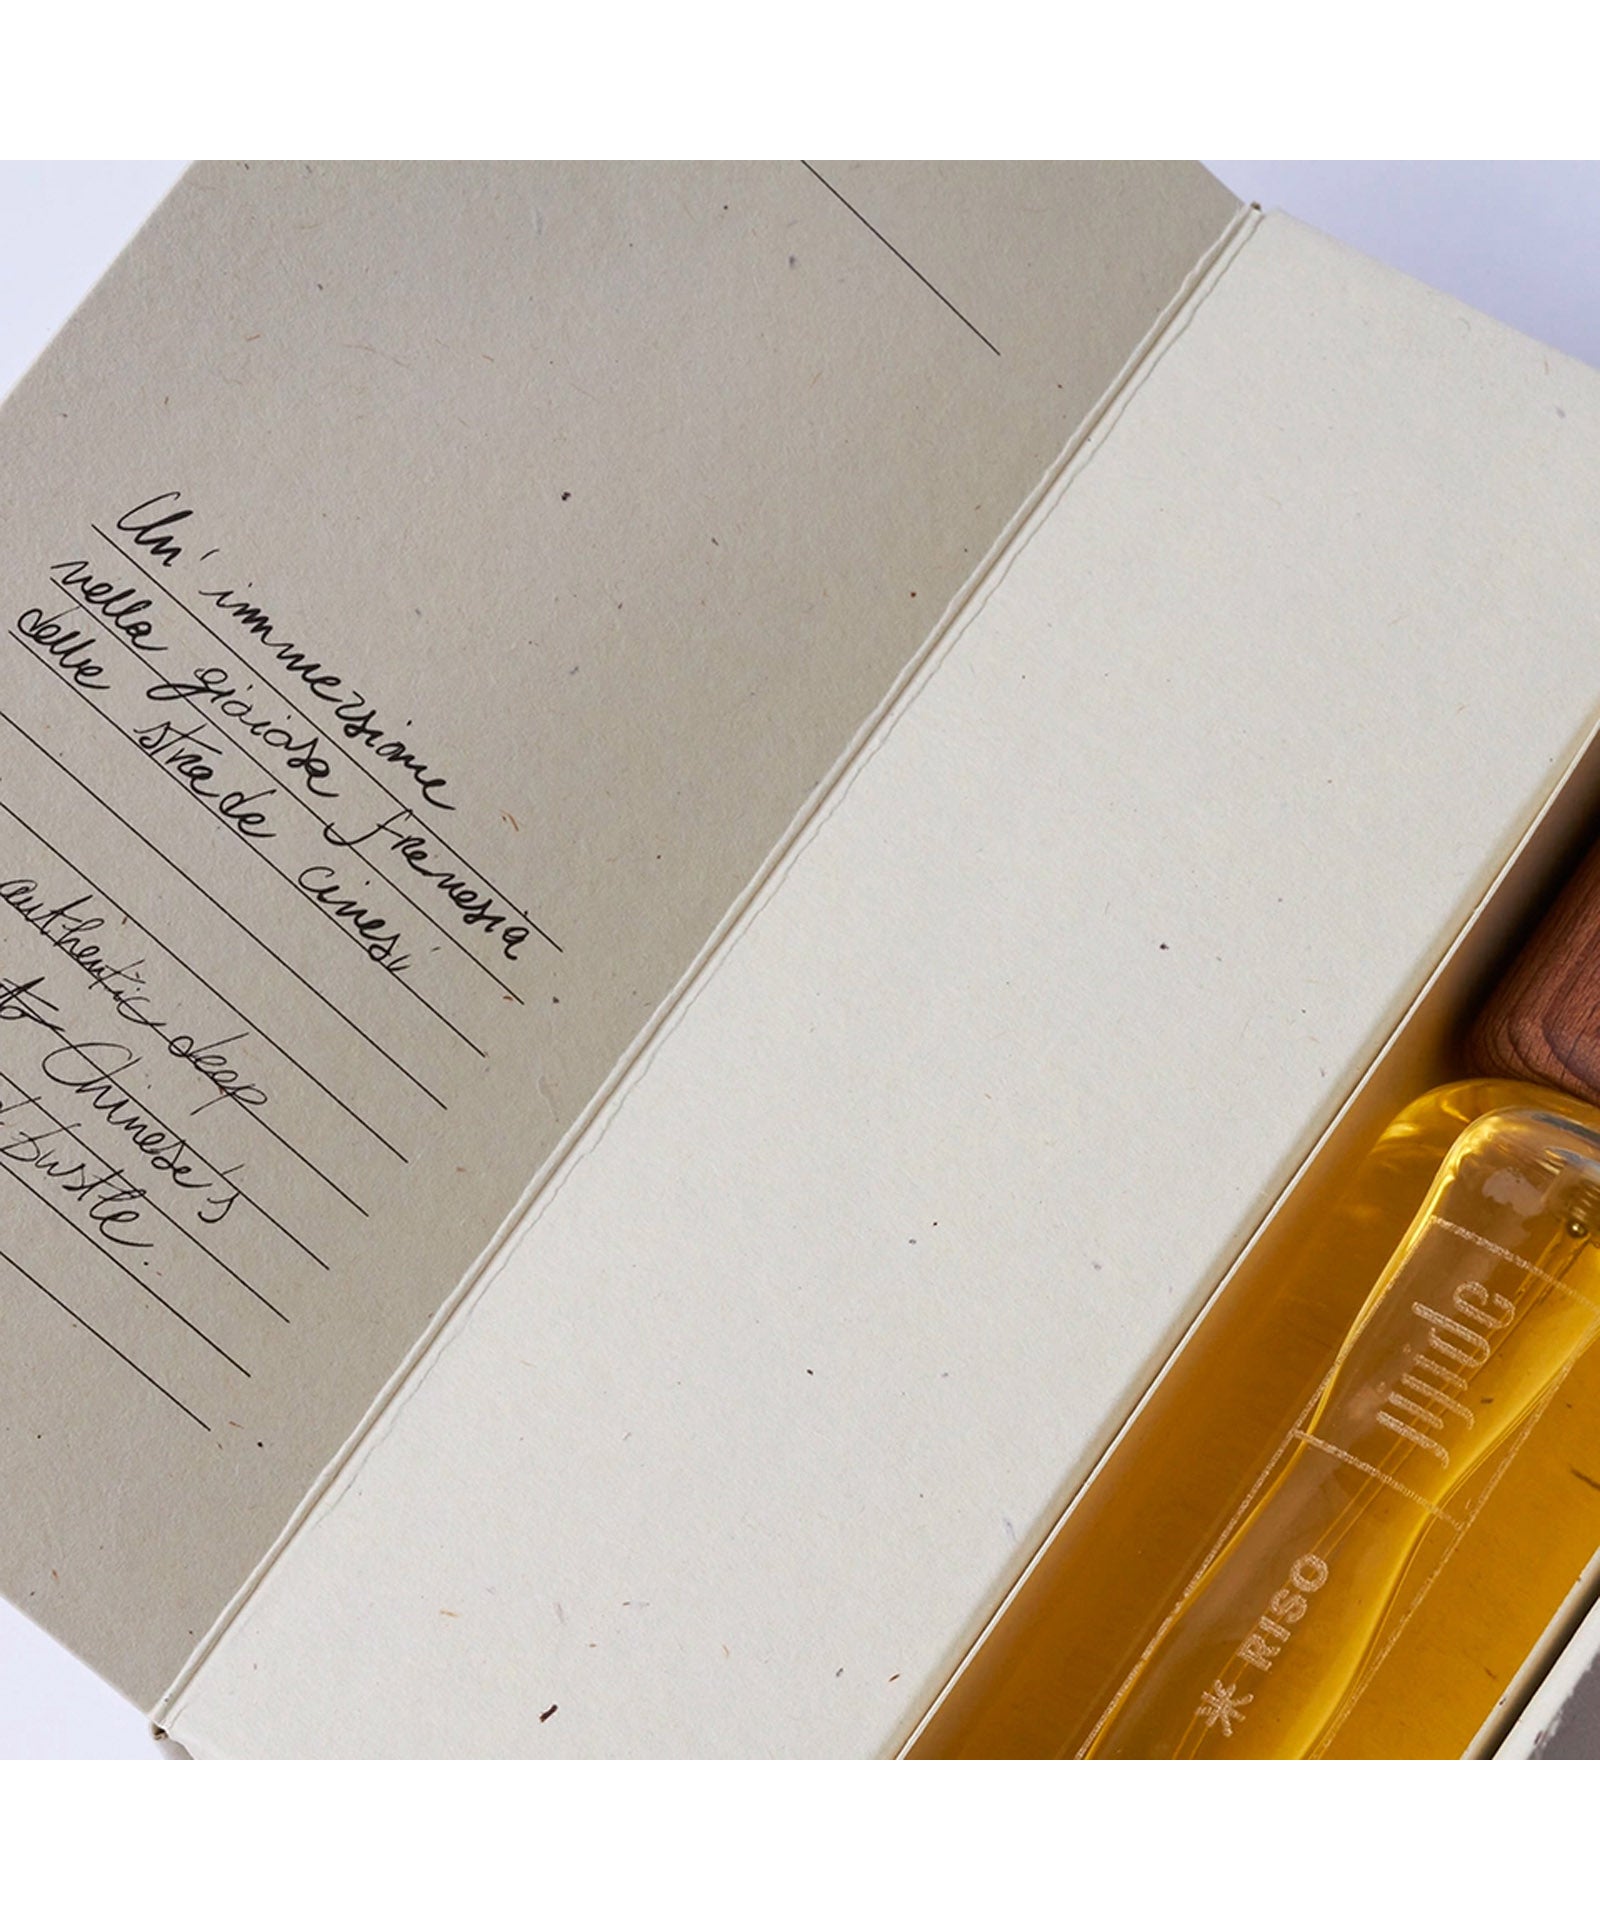 Un' immersione
nella gioiosa frenesia
delle strade cinesi
authentic deep
to Chinese's
bustle.
Jijide
RISO